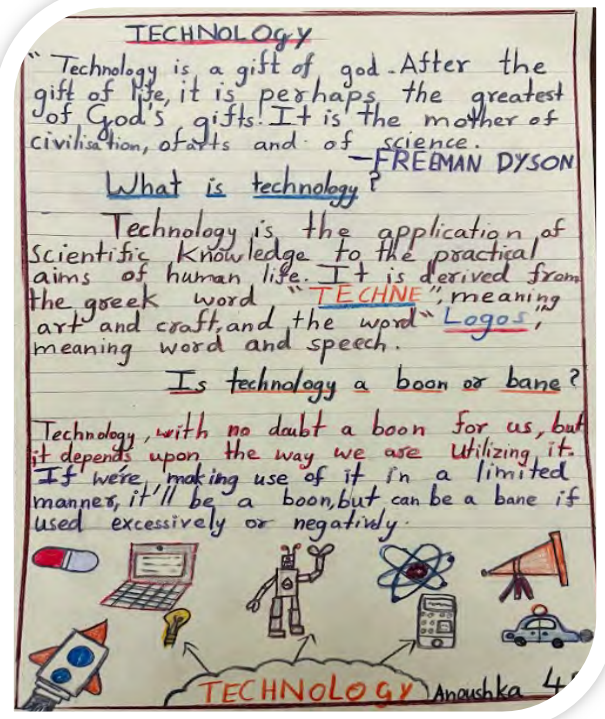 TECHNOLOGY
" Technology is a gift of god. After the
gift of life, it is perhaps the greatest
of God's gifts! It is the mother of
civilisation, of arts and of science.
—FREEMAN DYSON
What is technology?
Technology is the application of
Scientific Knowledge to the practical
aims of human life. It is derived from
the greek word "TECHNE", meaning
art and craft, and the word "Logos",
meaning word and speech.
Is technology a boon or bane?
Technology, with no doubt a boon for us, but
it depends upon the way we are utilizing it.
If we're, making use of it in a limited
manner, it'll be a boon, but can be a bane if
used excessively or negatively.
TECHNOLOGY Anoushka